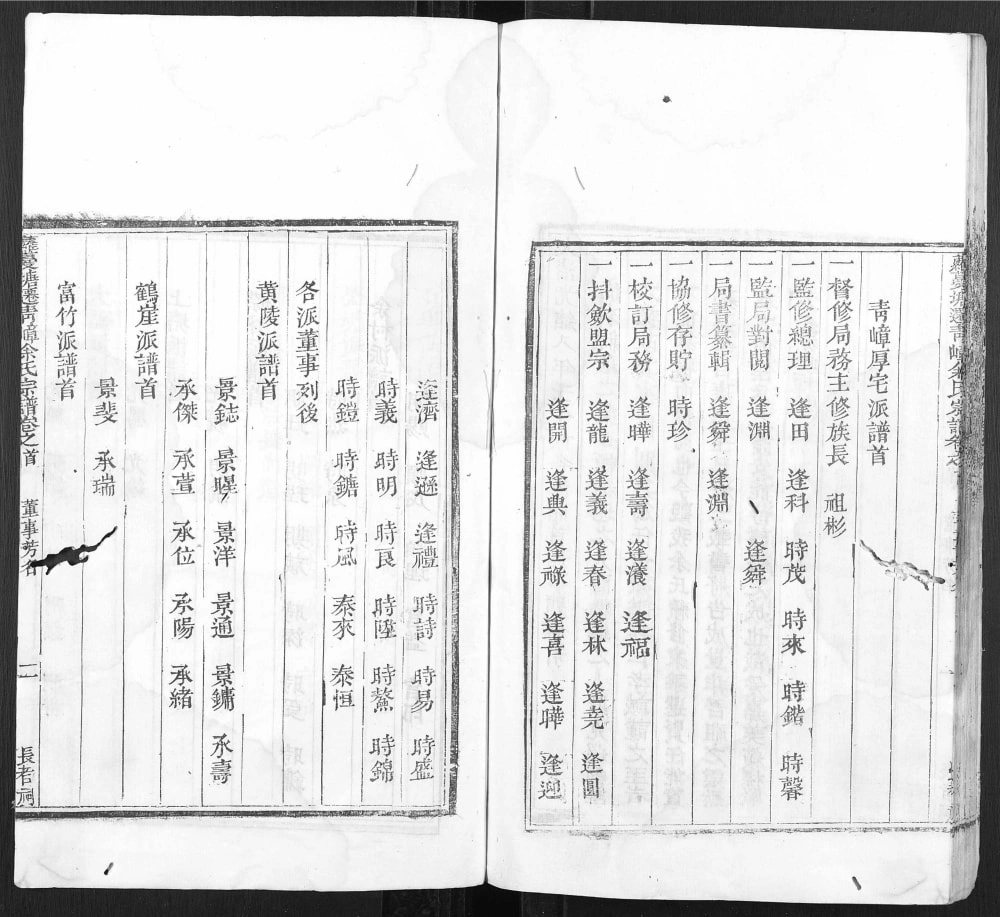 靑嶂厚宅派譜首
一督修局務主修族長 祖彬
一監修總理 逢田 逢科 時茂 時來 時鍇 時馨
一監局對閱 逢淵 逢舜
一局書纂輯 逢舜 逢淵
一協修存貯 時珍
一校訂局務 逢曄 逢壽 逢瀁 逢福
一抖斂盟宗 逢龍 逢義 逢春 逢林 逢堯 逢圓
逢開 逢典 逢祿 逢喜 逢曄 逢迎
逢濟 逢遜 逢禮 時詩 時易 時盛
時義 時明 時良 時陞 時鰲 時錦
時鎧 時鏞 時風 泰來 泰恒
各派董事列後
黃陵派譜首
景鋕 景暒 景洋 景通 景鏞 承壽
承傑 承萱 承位 承陽 承緒
鶴崖派譜首
景斐 承瑞
富竹派譜首
遷靑嶂余氏宗譜卷之首 董事芳名 二 長老祠